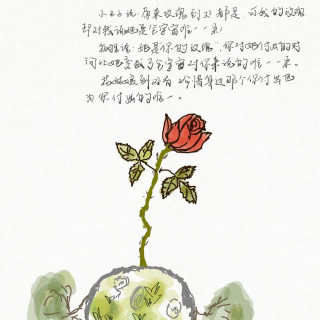 小王子说，原来玫瑰到处都是，可我的玫瑰
却对我说她是全宇宙唯一一朵！
狐狸说，她是你的玫瑰，你付出的时
间让她变成了全宇宙对你来说的唯一一朵。
你付出
为你付出的唯一。